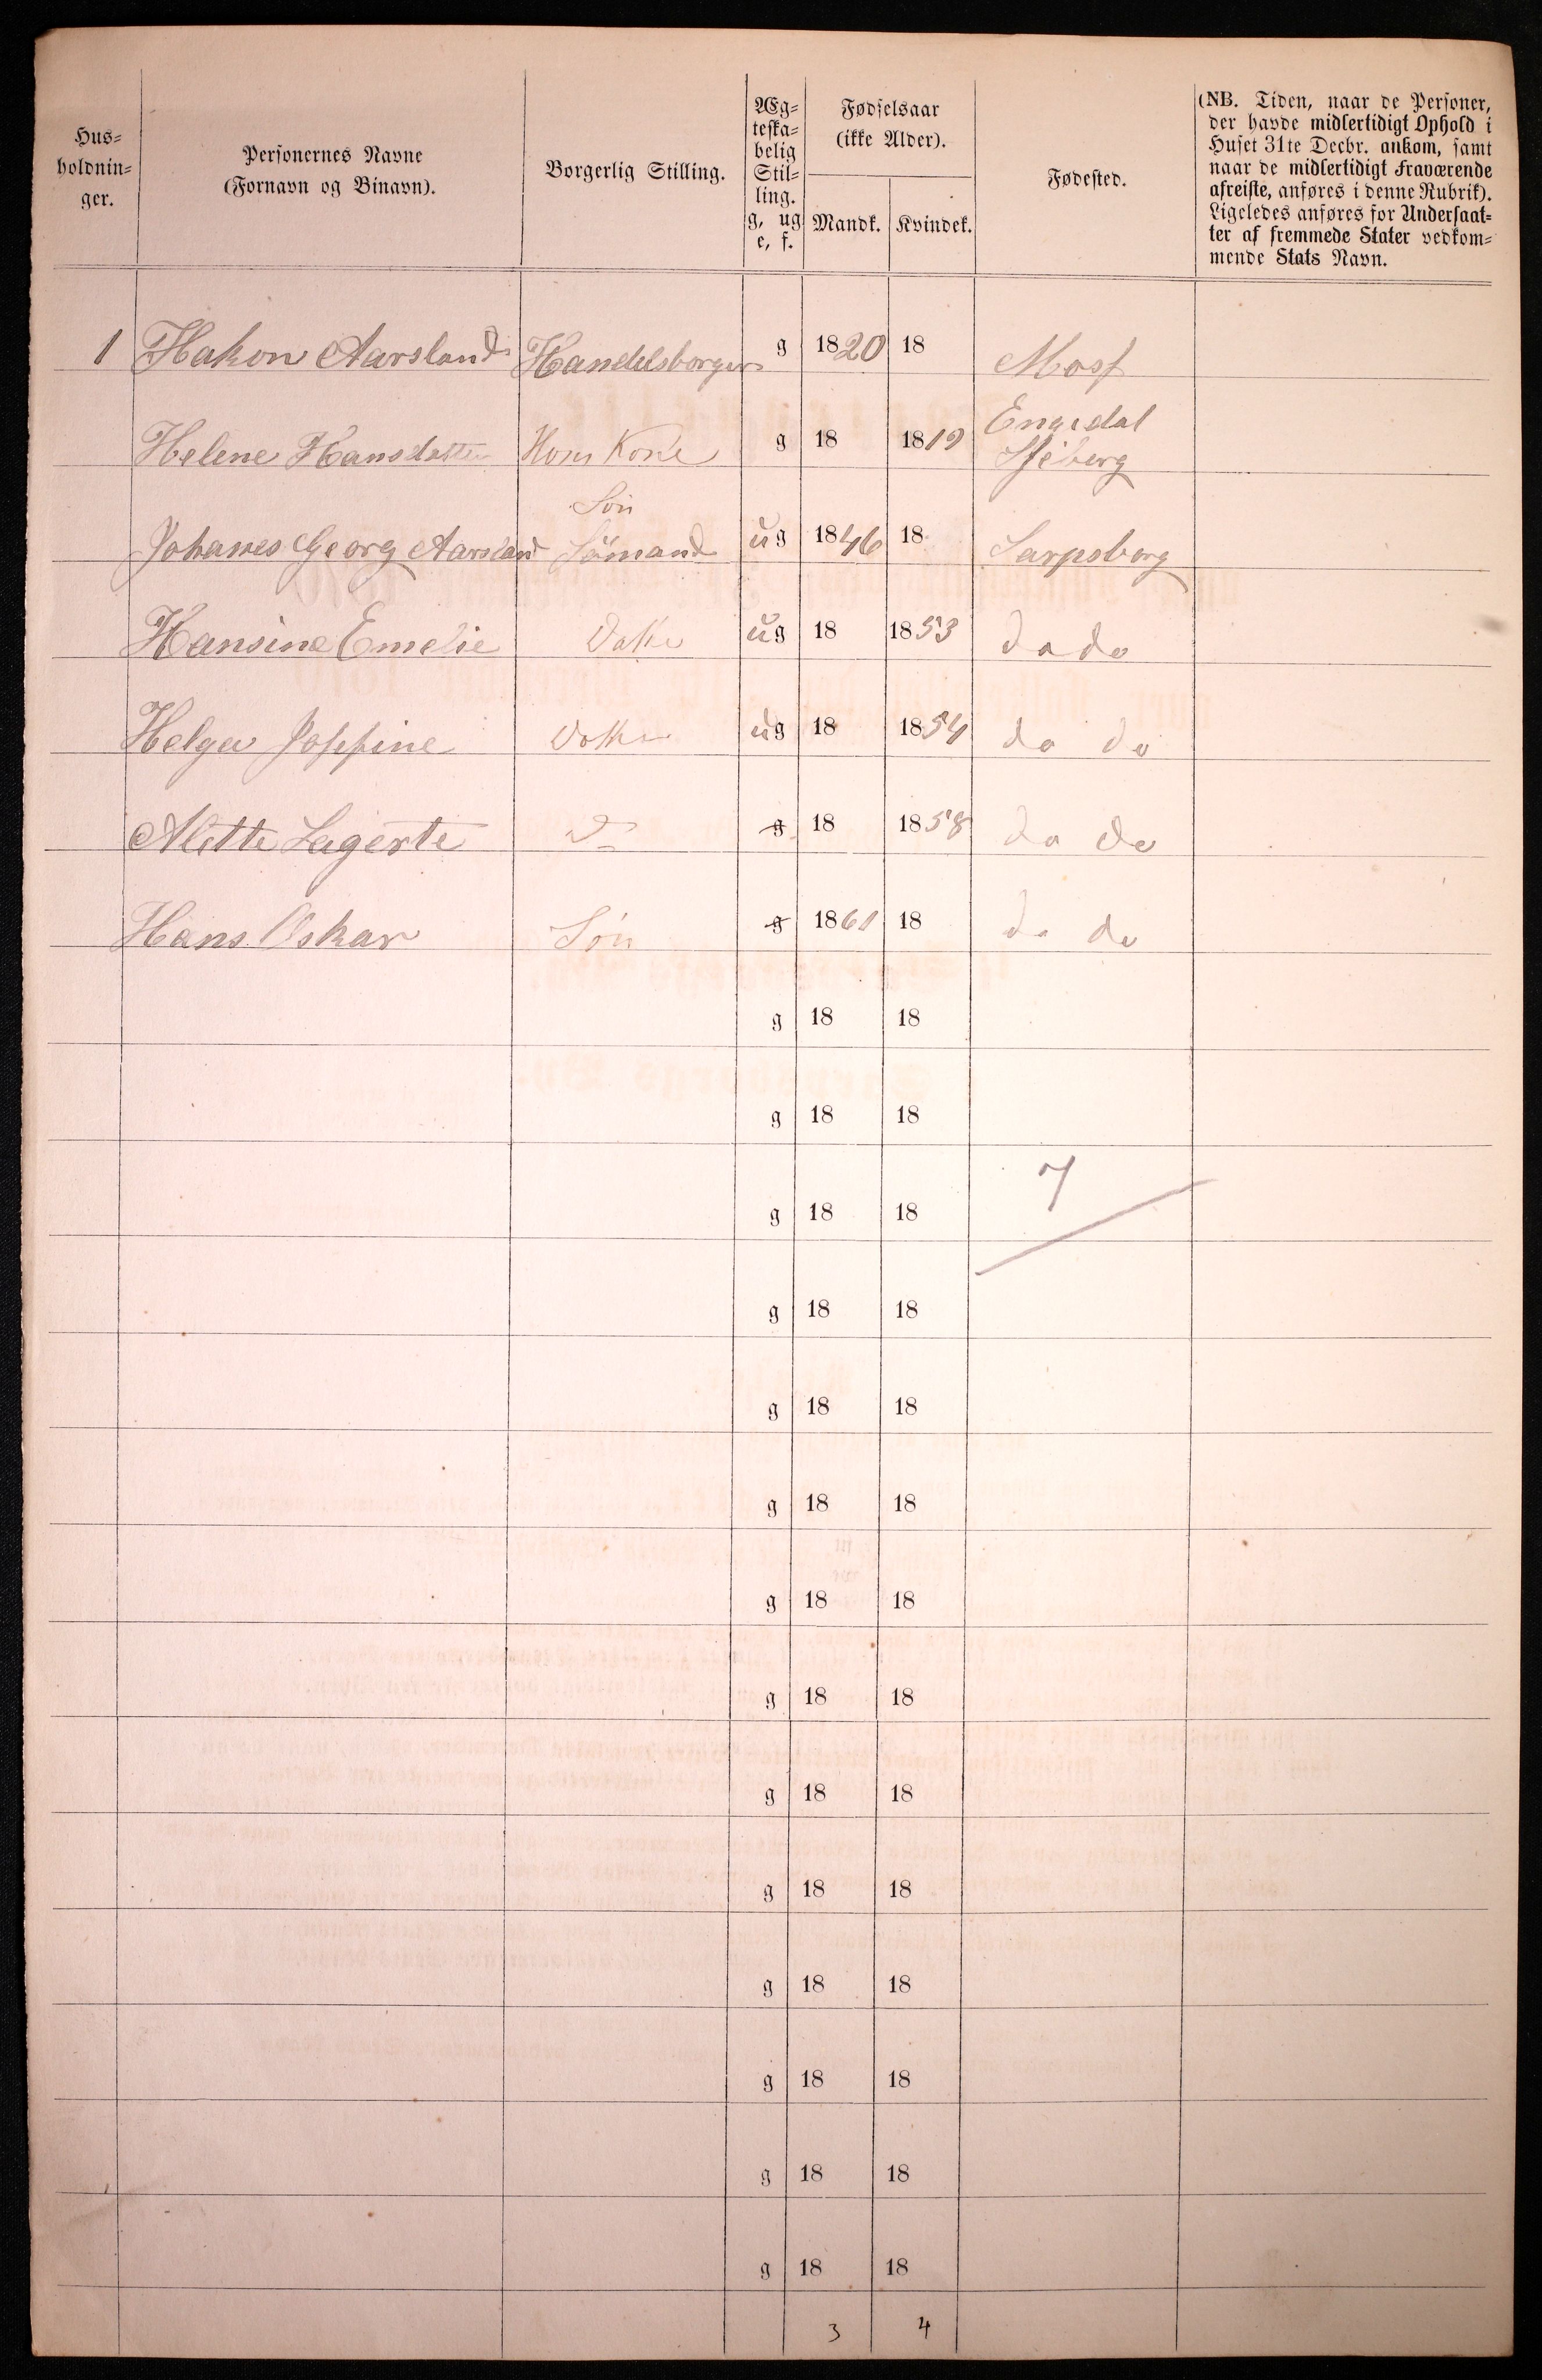 Hus-
holdnin-
ger.
Personernes Navne
(Fornavn og Binavn).
Borgerlig Stilling.
Æg-
teska-
belig
Stil-
ling.
g, ug
e, f.
Fødselsaar
(ikke Alder).
Mandk. Kvindek.
Fødested.
(NB. Tiden, naar de Personer,
der havde midlertidigt Ophold i
Huset 31te Decbr. ankom, samt
naar de midlertidigt fraværende
afreiste, anføres i denne Rubrik).
Ligeledes anføres for Undersaat-
ter af fremmede Stater vedkom-
mende Stats Navn.
1 Hakon Aarsland Handelsborger g 1820 18 Moss
Engedal
Helene Hansdatter Hans Kone g 18 1819 Sjeberg
Søn
Johanes Georg Aarsland Sömand ug 1846 18 Sarpsborg
Hansine Emelie Datter ug 18 1853 do do
Helga Josefine Datter ug 18 1854 do do
Alette Lagerte D g 18 1858 do do
Hans Oskar Søn g 1861 18 do do
g 18 18
g 18 18
g 18 18 7
g 18 18
g 18 18
g 18 18
g 18 18
g 18 18
g 18 18
g 18 18
g 18 18
g 18 18
g 18 18
g 18 18
3 4